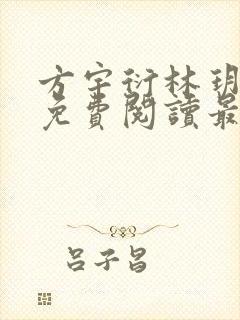 方宇衍林玥
免費閱讀最
呂子昌